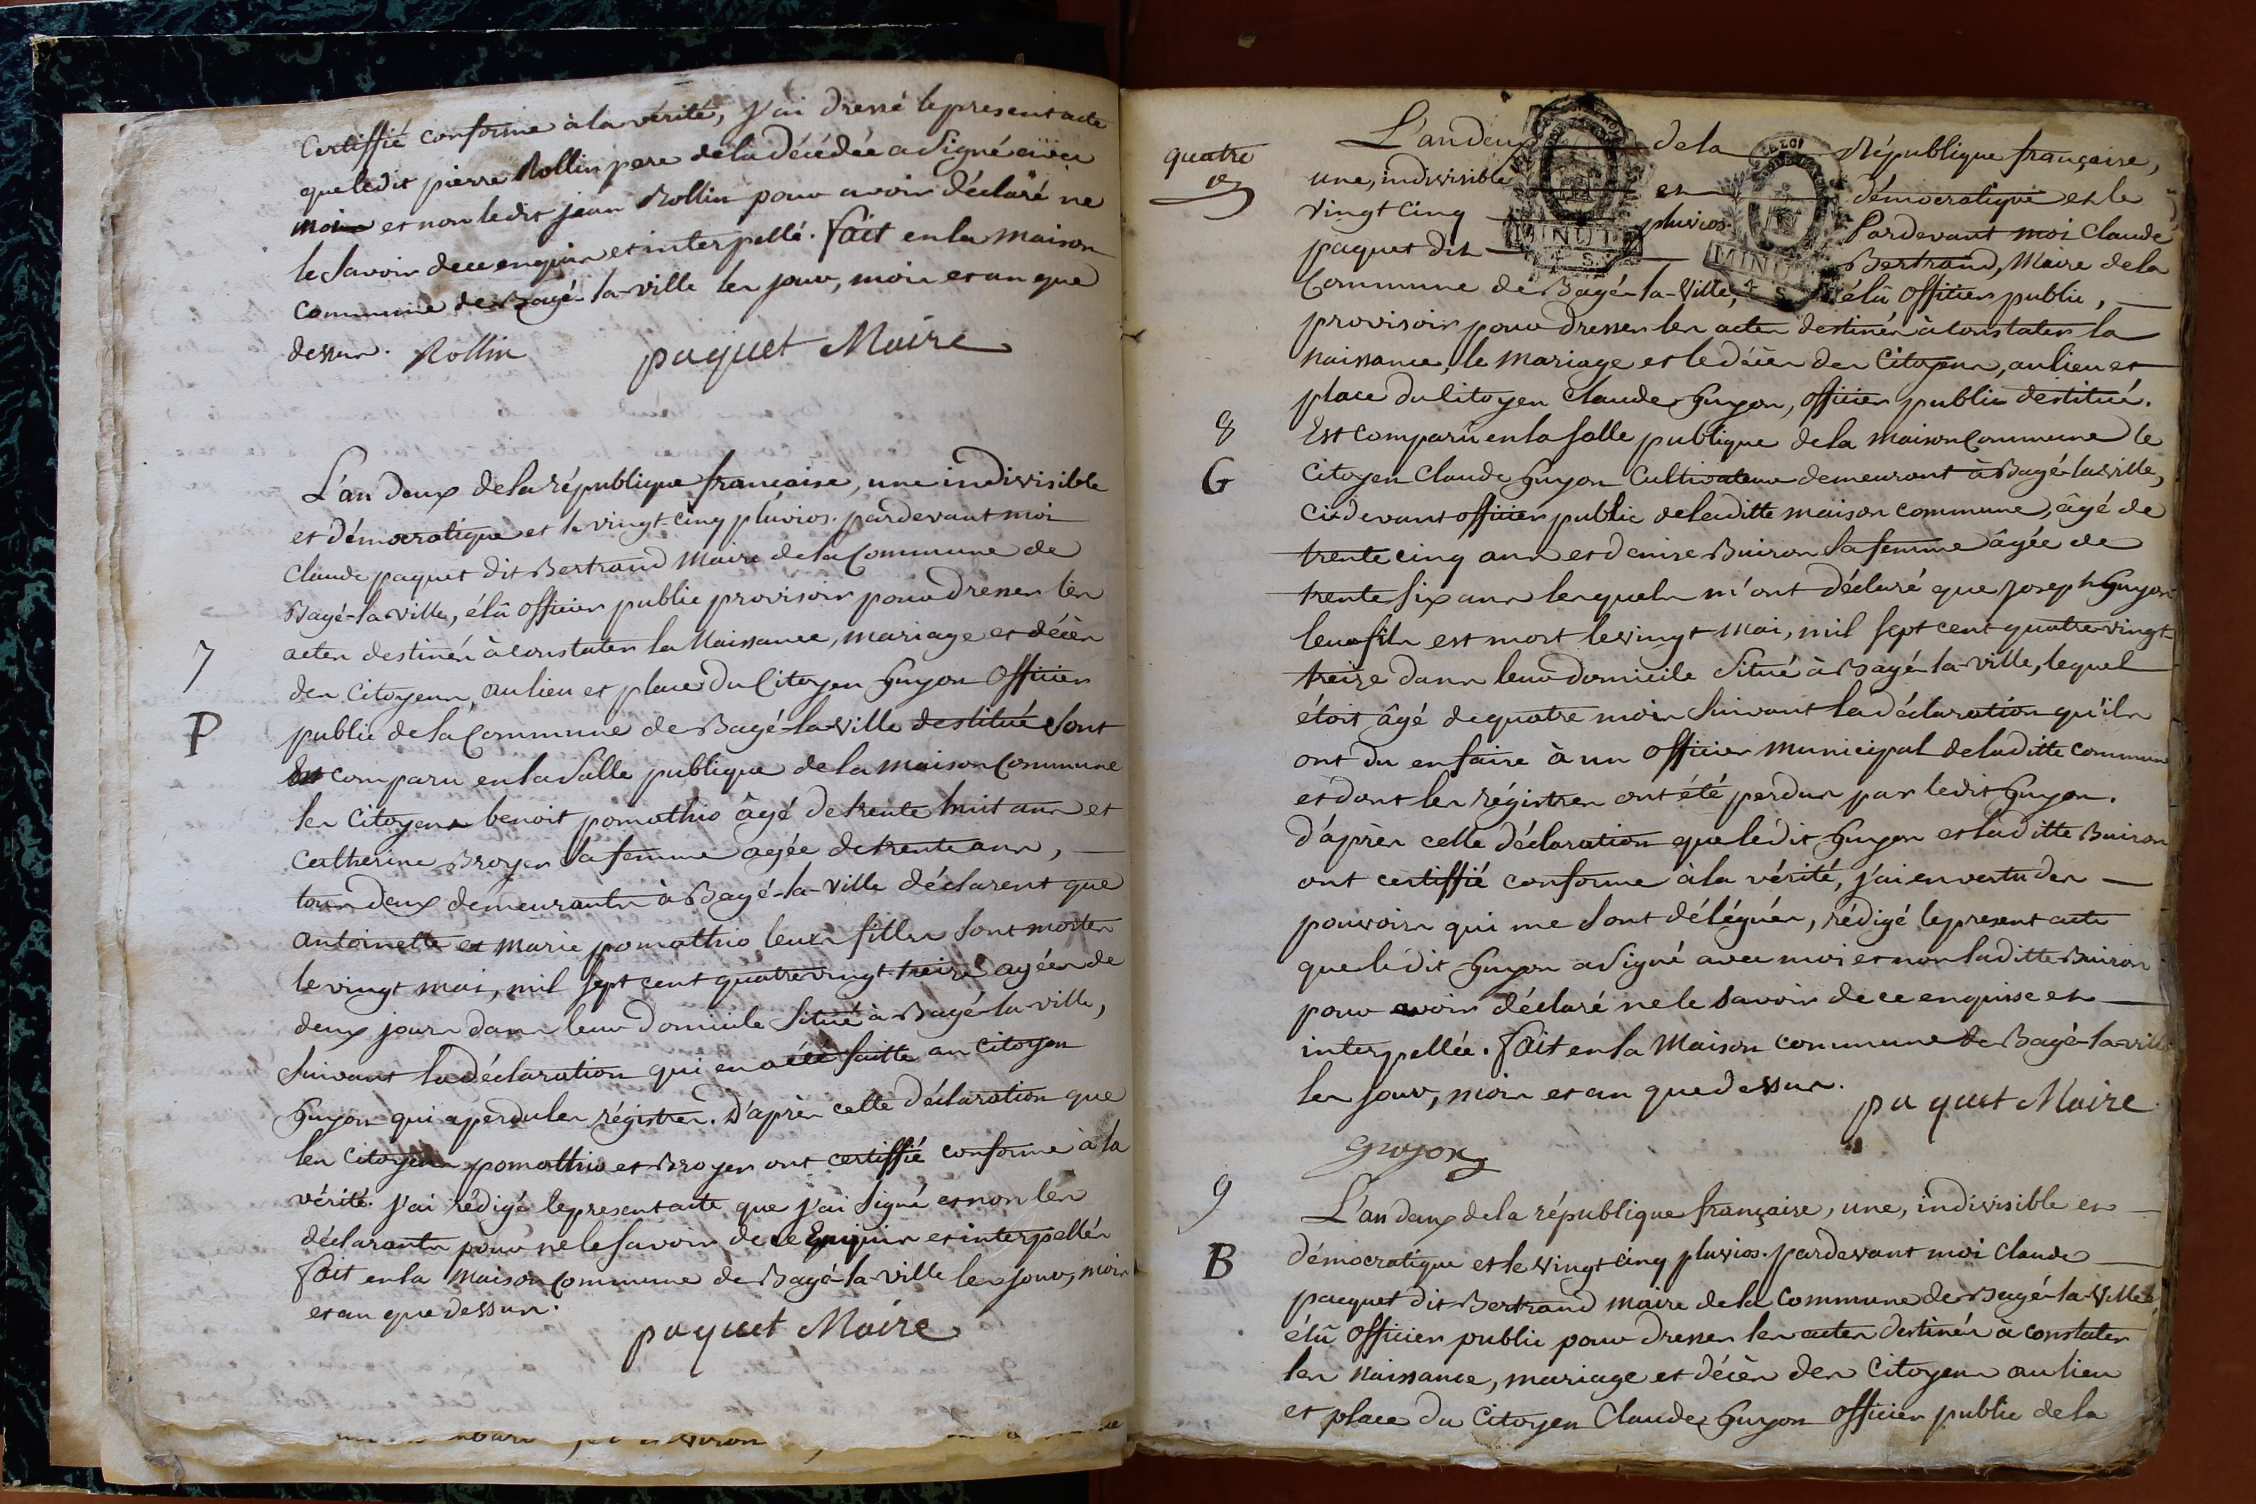 Certiffié conforme à la vérité, j'ai dressé le present acte
que ledit pierre Rollin pere de la décédée a signé avec
moi et non ledit jean Rollin pour avoir déclaré ne
le savoir de ce enquis et interpellé. fait en la maison
commune de Bagé-la-ville les jour, mois et an que
dessus. Rollin
paquet Maire
L'an deux de la république française, une indivisible
et démocratique et le vingt-cinq pluvios. pardevant moi
Claude paquet dit Bertrand Maire de la Commune de
Bagé-la-ville, élû officier public provisoir pour dresser les
7
actes destinés à constater la Naissance, mariage et décès
des Citoyens, au lieu et place du Citoyen Guyon officier
P
public de la Commune de Bagé-la-ville destitué sont
comparu en la salle publique de la maison Commune
les Citoyens benoit pomathio âgé de trente huit ans et
Catherine Broyer sa femme agée de trente ans,
tous deux demeurants à Bagé-la-ville déclarent que
antoinette et Marie pomathio leurs filles sont mortes
le vingt mai, mil sept cent quatre vingt-treize agées de
deux jours dans leur domicile situé à Bagé-la-ville,
suivant la déclaration qui en a été faitte au citoyen
Guyon qui a perdu les régistres. D'après cette déclaration que
les citoyens pomathio et Broyer ont certiffié conforme à la
vérité. j'ai rédigé le present acte que j'ai signé et non les
déclarants pour ne le savoir de ce Enquis et interpellés
fait en la Maison Commune de Bagé-la-ville les jour, mois
et an que dessus.
paquet Maire
quatre
L'an deux de la République française,
une, indivisible et démocratique et le
vingt cinq pluvios. Pardevant moi Claude
paquet dit Bertrand, Maire de la
Commune de Bagé-la-Ville, élû officier public,
provisoir pour dresser les actes destinés à constater la
naissance, le mariage et le décès des Citoyens, au lieu et
place du Citoyen Claude Guyon, officier public destitué.
8
Est comparû en la salle publique de la maison Commune le
G
Citoyen Claude Guyon Cultivateur demeurant à Bagé-la ville,
ci-devant officier public de laditte maison commune, âgé de
trente cinq ans et denise Buiron sa femme âgée de
trente six ans lesquels m'ont déclaré que joseph Guyon
leur fils est mort le vingt mai, mil sept cent quatre vingt-
treize dans leur domicile situé à Bagé-la-ville, lequel
étoit âgé de quatre mois suivant la déclaration qu'ils
ont du en faire à un officier municipal de laditte commune
et dont les régistres ont été perdus par ledit Guyon.
d'après cette déclaration que ledit Guyon et laditte Buiron
ont certiffié conforme à la vérité, j'ai en vertu des
pouvoirs qui me sont délégués, rédigé le present acte
que ledit Guyon a signé avec moi et non laditte Buiron
pour avoir déclaré ne le savoir de ce enquise et
interpellée. fait en la Maison commune de Bagé-la-ville
les jour, mois et an que dessus.
paquet Maire
guyon
9
L'an deux de la république française, une, indivisible et
B
démocratique et le vingt cinq pluvios. pardevant moi Claude
pacquet dit Bertrand maire de la Commune de Bagé-la-Ville
élû officier public pour dresser les actes destinés à constater
les Naissance, mariage et décès des Citoyens au lieu
et place du Citoyen Claude Guyon officier public de la